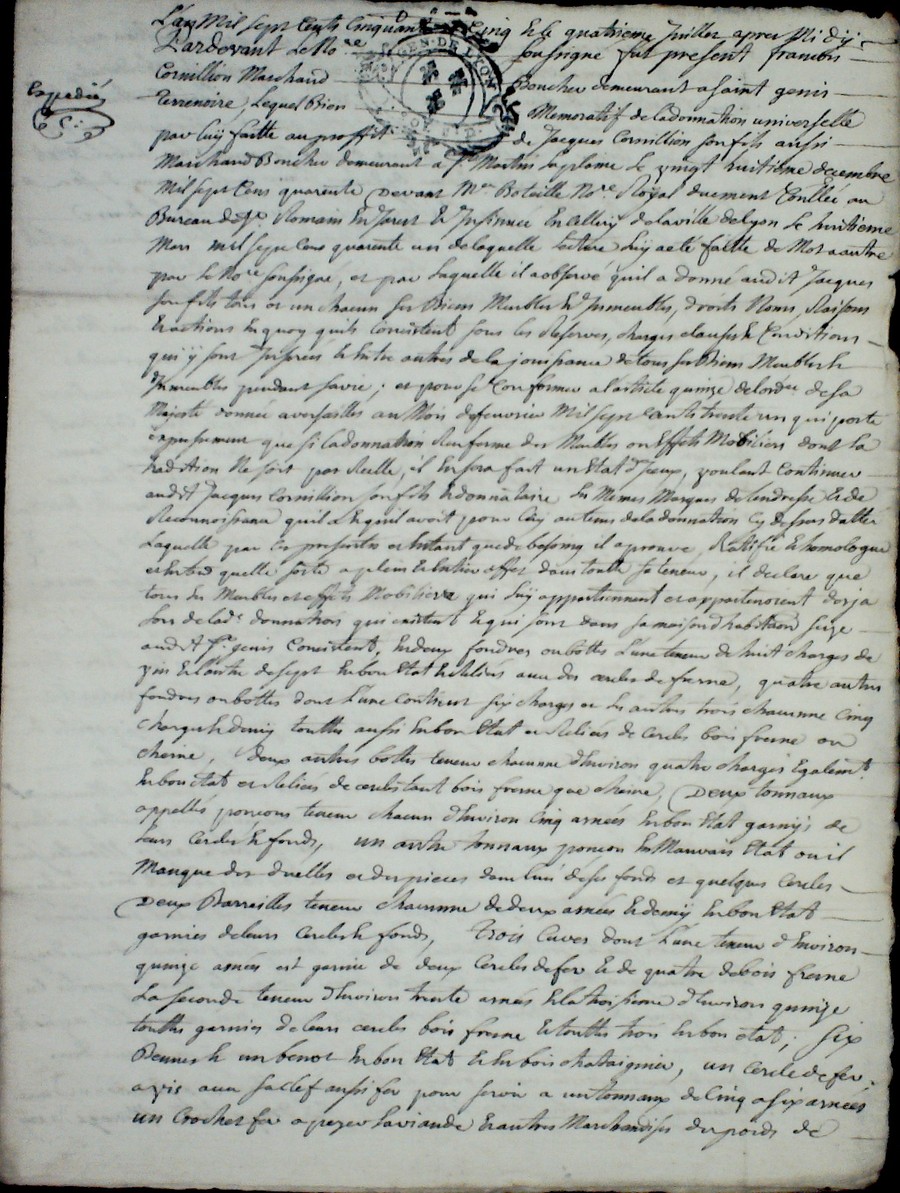 L'an Mil sept Cents Cinquante Cinq & le quatrieme Juillet apres Midy
Pardevant Le No.re soussigné fut present francois
Cornillion Marchand Boucher demeurant a saint genis
Expedié
terrenoire, Lequel Bien Memoratif de la donnation universelle
par luy faitte au proffit de Jacques Cornillion son fils aussi
Marchand Boucher demeurant a St Martin la plaine le vingt huitieme decembre
Mil sept Cens quarente Devant Me Boteille No.re Royal duement Conllée au
Bureau de St Romain En Jarest & Insinuée En de la ville de Lyon le huitieme
Mars mil sept Cens quarente un de laquelle lecture luy a eté faitte de Mot a autre
par le No.re soussigné, et par laquelle il a observé qu'il a donné audit Jacques
son fils tous et un chacun ses Biens Meubles & Immeubles, droits Noms, Raisons
& actions En quoy quils Consistent sous les Reserves, charges clauses & Conditions
qui y sont Inserées & Entre autres de la jouissance de tous ses Biens Meubles &
Immeubles pendant sa vie ; et pour se Conformer a l'article quinze de l'ord.ce de sa
Majesté donnée a versailles au Mois de fevrier Mil sept cents trente un qui porte
expressement que si la donnation Renferme des Meubles ou Effets Mobiliers dont la
tradition Ne soit pas Reelle, il En sera fait un Etat d'Iceux, voulant Continuer
audit Jacques Cornillion son fils & donnataire les Memes Marques de tendresse & de
Reconnoissance qu'il a & quil avoit pour luy au tems de la donnation cy dessus dattée
Laquelle par ces presentes et En tant que de besoing il aprouve, Rattifie & homologue
et En tend quelle sorte a plein & Entier effet dans toutte sa teneur, il declare que
tous les Meubles et effets Mobiliers qui luy appartiennent et appartenoient desja
lors de lad.e donnation qui existent & qui sont dans sa maison d'habitation size
audit St genis Consistent, En deux foudres ou bottes l'une teneur de huit charges de
vin & l'autre de sept En bon Etat & Reliées avec des cercles de fresne, quatre autres
foudres ou bottes dont l'une contient six charges et les autres trois chacunne Cinq
charges & demy touttes aussi En bon Etat et Reliées de Cercles bois fresne ou
chesne, deux autres bottes teneur chacunne d'Environ quatre charges Egalem.t
En bon etat et Reliées de cercles tant bois fresne que chesne, Deux tonnaux
appellés ponçons teneur chacun d'Environ Cinq anées En bon Etat garnys de
leurs Cercles & fonds, un autre tonnaux ponçon En Mauvais Etat ou il
Manque des duelles et des pieces dans l'un de ses fonds et quelques Cercles
Deux Barrailles teneur chacunne de deux anées & demy En bon Etat
garnies de leurs Cercles & fonds, Trois Cuves dont l'une teneur d'Environ
quinze anées est garnie de deux Cercles de fer & de quatre de bois fresne
La seconde teneur d'Environ trente anées & la troisieme d'Environ quinze
touttes garnies de leurs cercles bois fresne & touttes trois En bon etat ; Six
Bennes & un benot En bon Etat & En bois chataignier, un Cercle de fer
a vis avec sa clef aussi fer pour servir a un tonnaux de Cinq a six anées
un Crochet fer a pezer la viande & autres Marchandises du poids de